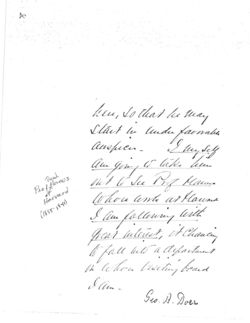 here, so that he may
start in under favorable
auspices. I myself
am going to take him
out to see Prof. Hanus
whose work at Harvard
I am following with
great interest, as chancing
to fall into a department
on whose visiting board
I am.
Geo. A. Dorr
Paul
Prof Hanus
of
Harvard